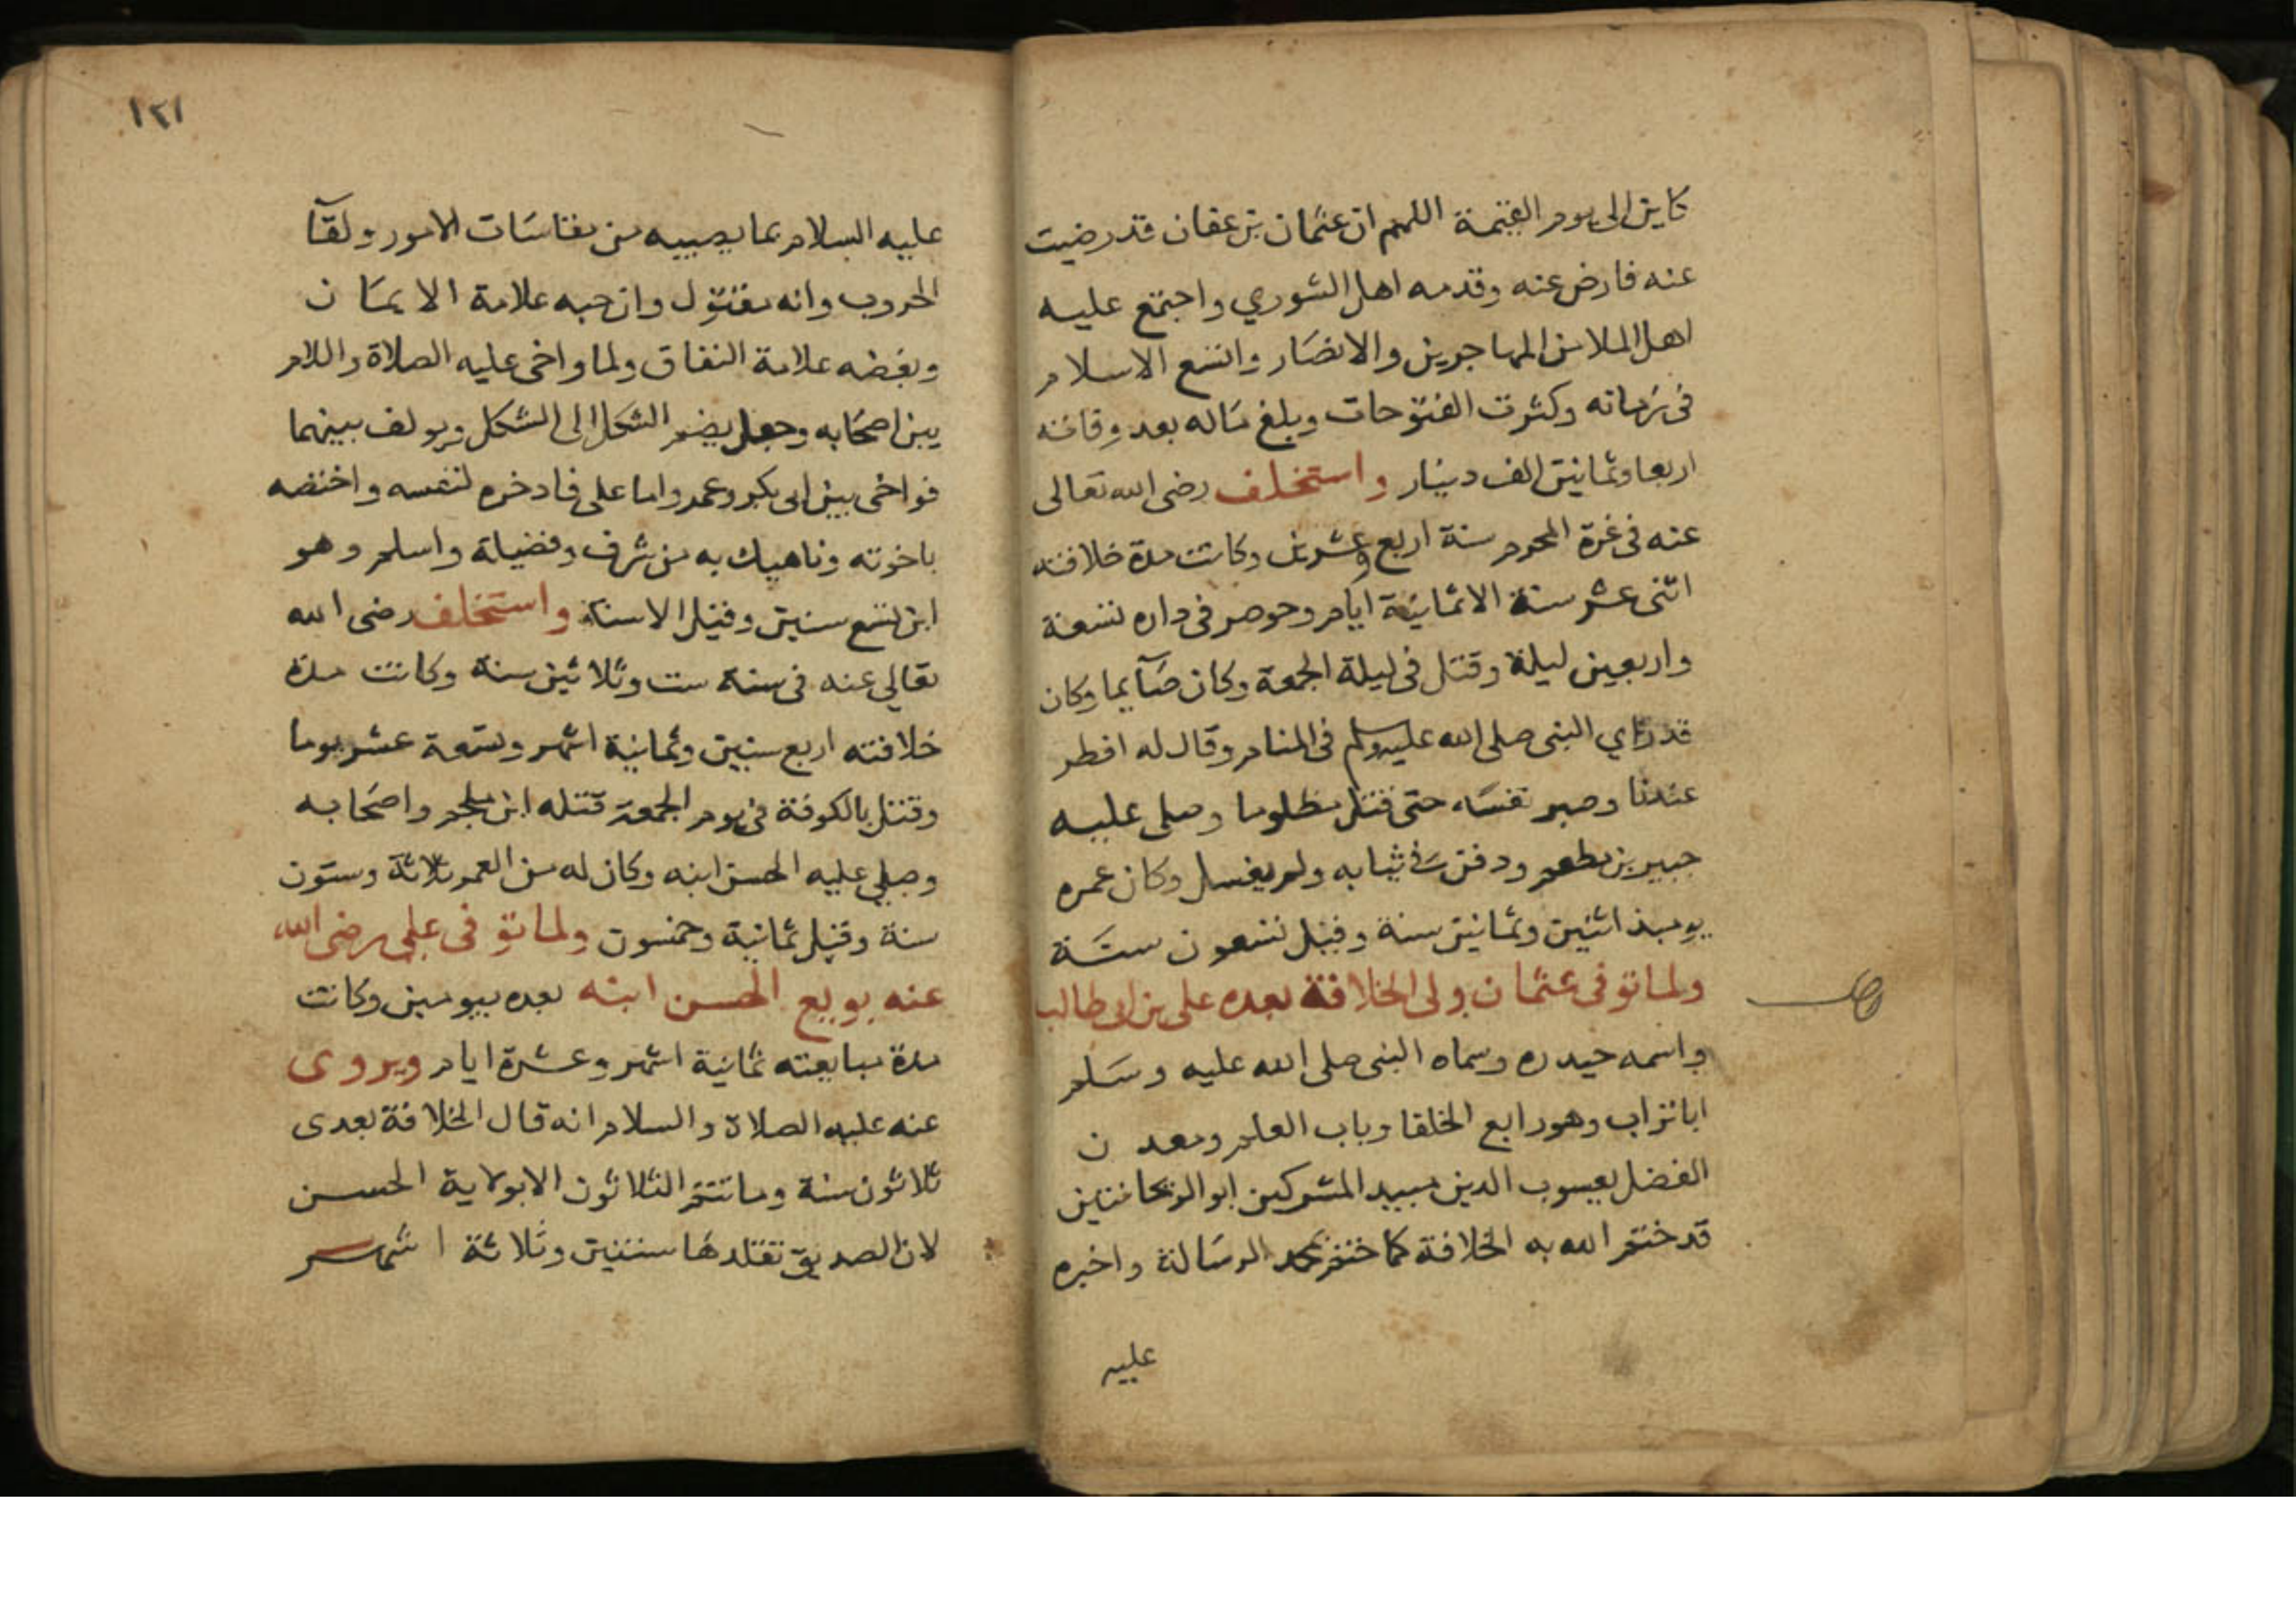 كاين الى يوم القيمة اللهم ان عثمان بن عفان قد رضيت
عنه فارض عنه وقدمه اهل الشوري واجتمع عليه
اهل الملا من المهاجرين والانصار واتسع الاسلام
فى زمانه وكثرت الفتوحات وبلغ ماله بعد وفاته
اربعا وثمانين الف دينار واستخلف رضى الله تعالى
عنه فى غرة المحرم سنة اربع وعشرين وكانت مدة خلافته
اثنى عشر سنة الا ثمانية ايام وحوصر فى داره تسعة
واربعين ليلة وقتل فى ليلة الجمعة وكان صآيما وكان
قد راي النبى صلى الله عليه وسلم فى المنام وقال له افطر
عندنا وصبر نفسه حتى قتل مظلوما وصلى عليه
جبير بن مطعم ودفن فى ثيابه ولم يغسل وكان عمره
يوميذ اثنين وثمانين سنة وقيل تسعون سنة
ولما توفى عثمان ولى الخلافة بعده على بن ابى طالب
واسمه حيدره وسماه النبى صلى الله عليه وسلم
ابا تراب وهو رابع الخلفا وباب العلم ومعدن
الفضل يعسوب الدين مبيد المشركين ابو الريحانتين
قد ختم الله به الخلافة كما ختم بمحمد الرسالة واخبره
عليه
١٢١
عليه السلام بما يصيبه من مقاسات الامور ولقآ
الحروب وانه مقتول وان حبه علامة الايمان
وبغضه علامة النفاق ولما واخى عليه الصلاة والسلام
بين اصحابه وجعل يضم الشكل الى الشكل ويولف بينهما
فواخى بين ابى بكر وعمر واما على فادخره لنفسه واختصه
باخوته وناهيك به من شرف وفضيلة واسلم وهو
ابن تسع سنين وقيل الا سنة واستخلف رضى الله
تعالي عنه فى سنة ست وثلاثين سنة وكانت مدة
خلافته اربع سنين وثمانية اشهر وتسعة عشر يوما
وقتل بالكوفة فى يوم الجمعة قتله ابن ملجم واصحابه
وصلي عليه الحسن ابنه وكان له من العمر ثلاثة وستون
سنة وقيل ثمانية وخمسون ولما توفى علي رضى الله
عنه بويع الحسن ابنه بعده بيومين وكانت
مدة مبايعته ثمانية اشهر وعشرة ايام ويروى
عنه عليه الصلاة والسلام انه قال الخلافة بعدى
ثلاثون سنة وما تتم الثلاثون الا بولاية الحسن
لان الصديق تقلدها سنتين وثلاثة اشهر